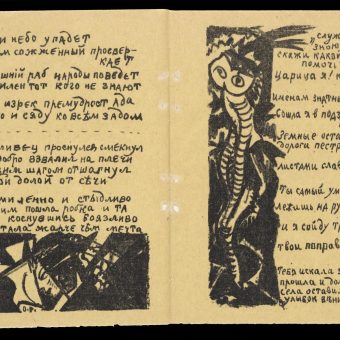 И НЕБО УПАДЕТ
М СОЖЖЕННЫЙ ПРОСВЕР-
КАЕТ
ШНІЙ РАБ НАРОДЫ ПОВЕДЕТ
ИЛЕН ТОТ КОГО НЕ ЗНАЮТ
ИЗРЕК ПРЕМУДРОСТ АДА
О И СЯДУ КО ВСѢМ ЗАДОМ
ЛИВЕЦ ПРОСНУЛСЯ СМЕКНУЛ
ОБРО ВЗВАЛИЛ НА ПЛЕЧИ
ШАГОМ ОТШАГНУЛ
ОЙ ДОЛОЙ ОТ СѢЧИ
МИЛЕННО И СТЫДЛИВО
ИМ ПОШЛА РОБКА И ТА
КОСНУВШИСЬ БОЯЗЛИВО
ТАЛА ЖАЛЧЕ ЧѢМ МЕЧТА
О.Р.
„СЛУЖ
ЗНОЮ
СКАЖИ КАКИ
ПОМОЧЬ
ЦАРИЦА Я!
ИМЕНАМ ЗНАТНЫ
СОШЛА Я В ПОДЗ
ЗЕМНЫЕ ОСТА
ДОРОГА ПЕСТР
ЛИСТАМИ СЛАВ
ТЫ САМЫЙ УМ
ЛЕЖИШЬ НА РУ
И Я СОЙДУ ТР
ТВОИ ПОПРАВ
ТЕБЯ ИСКАЛА
ПРОШЛА И ДО
СЕЛА ОСТАВИЛ
УЛЫБОК